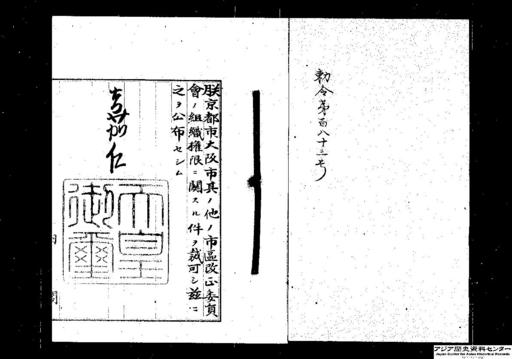 勅令第百八十三号
朕京都市大阪市其ノ他ノ市區改正委員
會ノ組織權限ニ關スル件ヲ裁可シ茲ニ
之ヲ公布セシム
嘉仁
天皇
御璽
内
閣
アジア歴史資料センター
Japan Center for Asian Historical Records